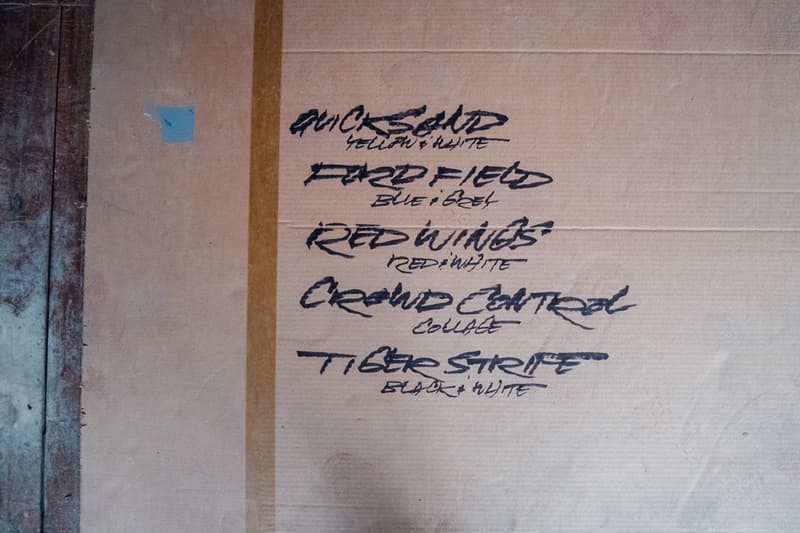 QUICKSAND
YELLOW & WHITE
FORD FIELD
BLUE & GREY
RED WINGS
RED & WHITE
CROWD CONTROL
COLLAGE
TIGER STRIPE
BLACK & WHITE